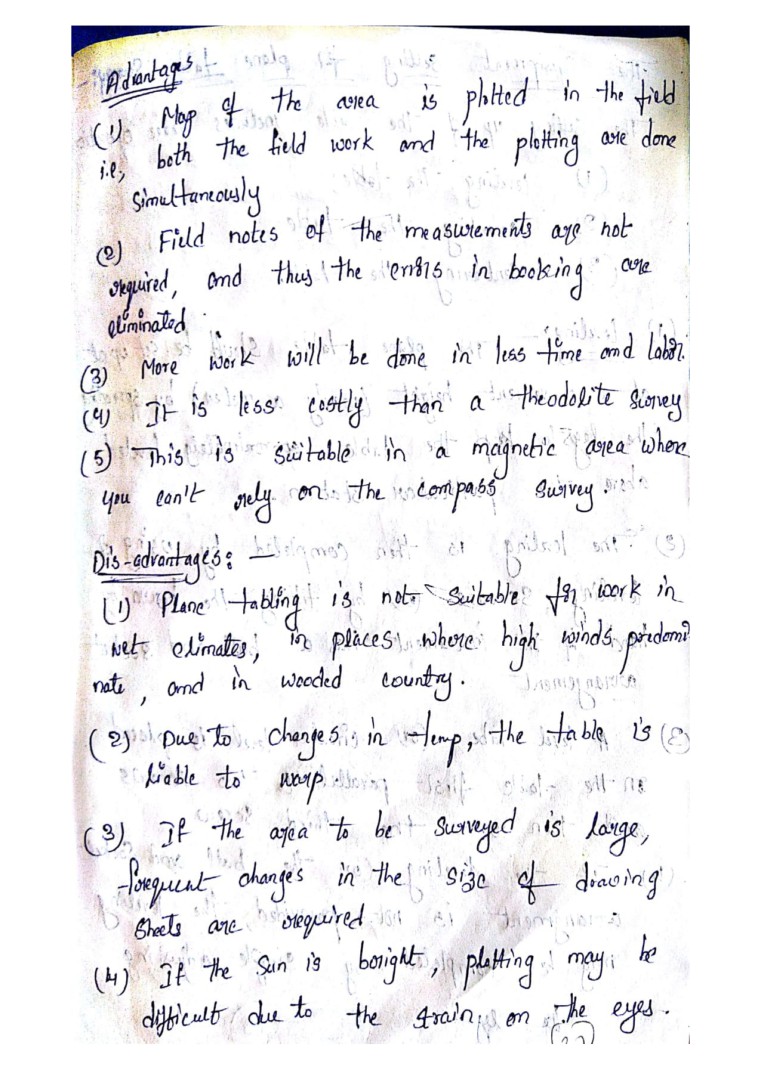 Advantages
(1) Map of the area is plotted in the field
i.e, both the field work and the plotting are done
Simultaneously
(2) Field notes of the measurements are not
required, and thus the errors in booking are
eliminated
(3) More work will be done in less time and labor.
(4) It is less costly than a theodolite survey
(5) This is suitable in a magnetic area where
you can't rely on the compass survey.
Dis-advantages: —
(1) Plane tabling is not suitable for work in
wet climates, in places where high winds predomi
nate, and in wooded country.
(2) Due to changes in temp, the table is
liable to warp.
(3) If the area to be surveyed is large,
frequent changes in the size of drawing
sheets are required.
(4) If the sun is bright, plotting may be
difficult due to the strain on the eyes.